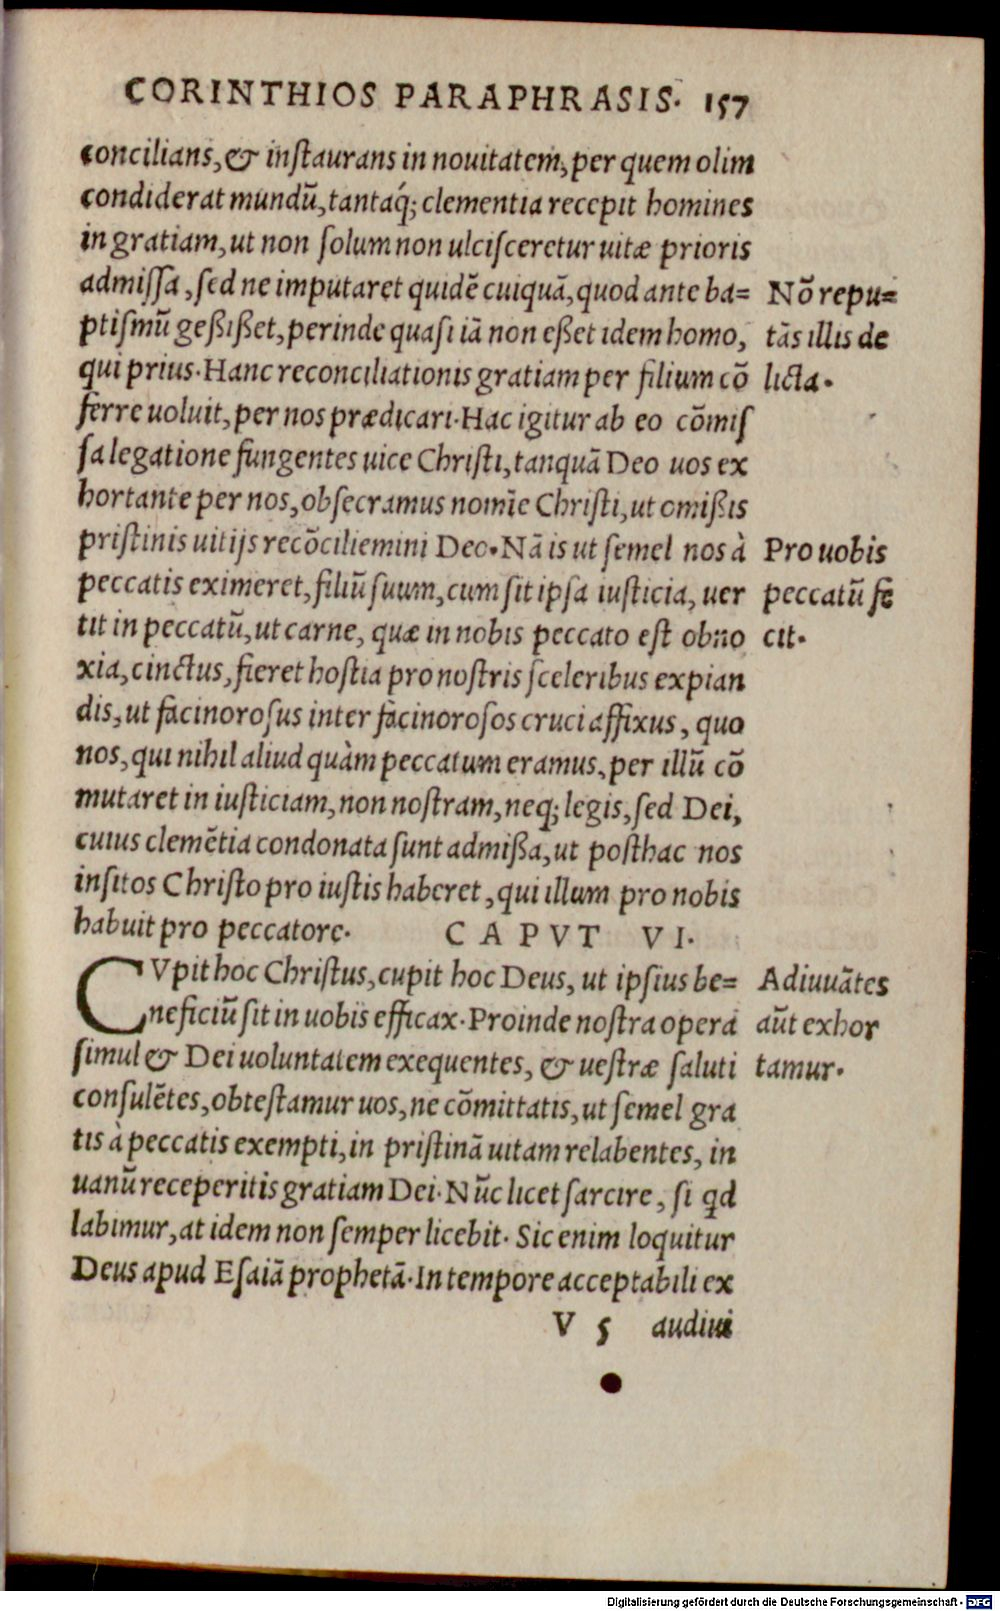 CORINTHIOS PARAPHRASIS. 157
concilians, & inſtaurans in nouitatem, per quem olim
condiderat mundũ, tantaq́; clementia recepit homines
in gratiam, ut non ſolum non ulciſceretur uitæ prioris
admiſſa, ſed ne imputaret quidẽ cuiquã, quod ante ba=
ptiſmũ geßißet, perinde quaſi iã non eßet idem homo,
qui prius. Hanc reconciliationis gratiam per filium cõ
ferre uoluit, per nos prædicari. Hac igitur ab eo cõmiſ
ſa legatione fungentes uice Chriſti, tanquã Deo uos ex
hortante per nos, obſecramus nomĩe Chriſti, ut omißis
priſtinis uitijs recõciliemini Deo. Nã is ut ſemel nos à
peccatis eximeret, filiũ ſuum, cum ſit ipſa iuſticia, uer
tit in peccatũ, ut carne, quæ in nobis peccato eſt obno
xia, cinctus, fieret hoſtia pro noſtris ſceleribus expian
dis, ut facinoroſus inter facinoroſos cruci affixus, quo
nos, qui nihil aliud quàm peccatum eramus, per illũ cõ
mutaret in iuſticiam, non noſtram, neq; legis, ſed Dei,
cuius clemẽtia condonata ſunt admißa, ut poſthac nos
inſitos Chriſto pro iuſtis haberet, qui illum pro nobis
habuit pro peccatore. CAPVT VI.
CVpit hoc Chriſtus, cupit hoc Deus, ut ipſius be=
neficiũ ſit in uobis efficax. Proinde noſtra opera
ſimul & Dei uoluntatem exequentes, & ueſtræ ſaluti
conſulẽtes, obteſtamur uos, ne cõmittatis, ut ſemel gra
tis à peccatis exempti, in priſtinã uitam relabentes, in
uanũ receperitis gratiam Dei. Nũc licet ſarcire, ſi qd
labimur, at idem non ſemper licebit. Sic enim loquitur
Deus apud Eſaiã prophetã. In tempore acceptabili ex
V 5 audiui
Nõ repu=
tãs illis de
licta.
Pro uobis
peccatũ fe
cit.
Adiuuãtes
aũt exhor
tamur.
Digitalisierung gefördert durch die Deutsche Forschungsgemeinschaft - DFG